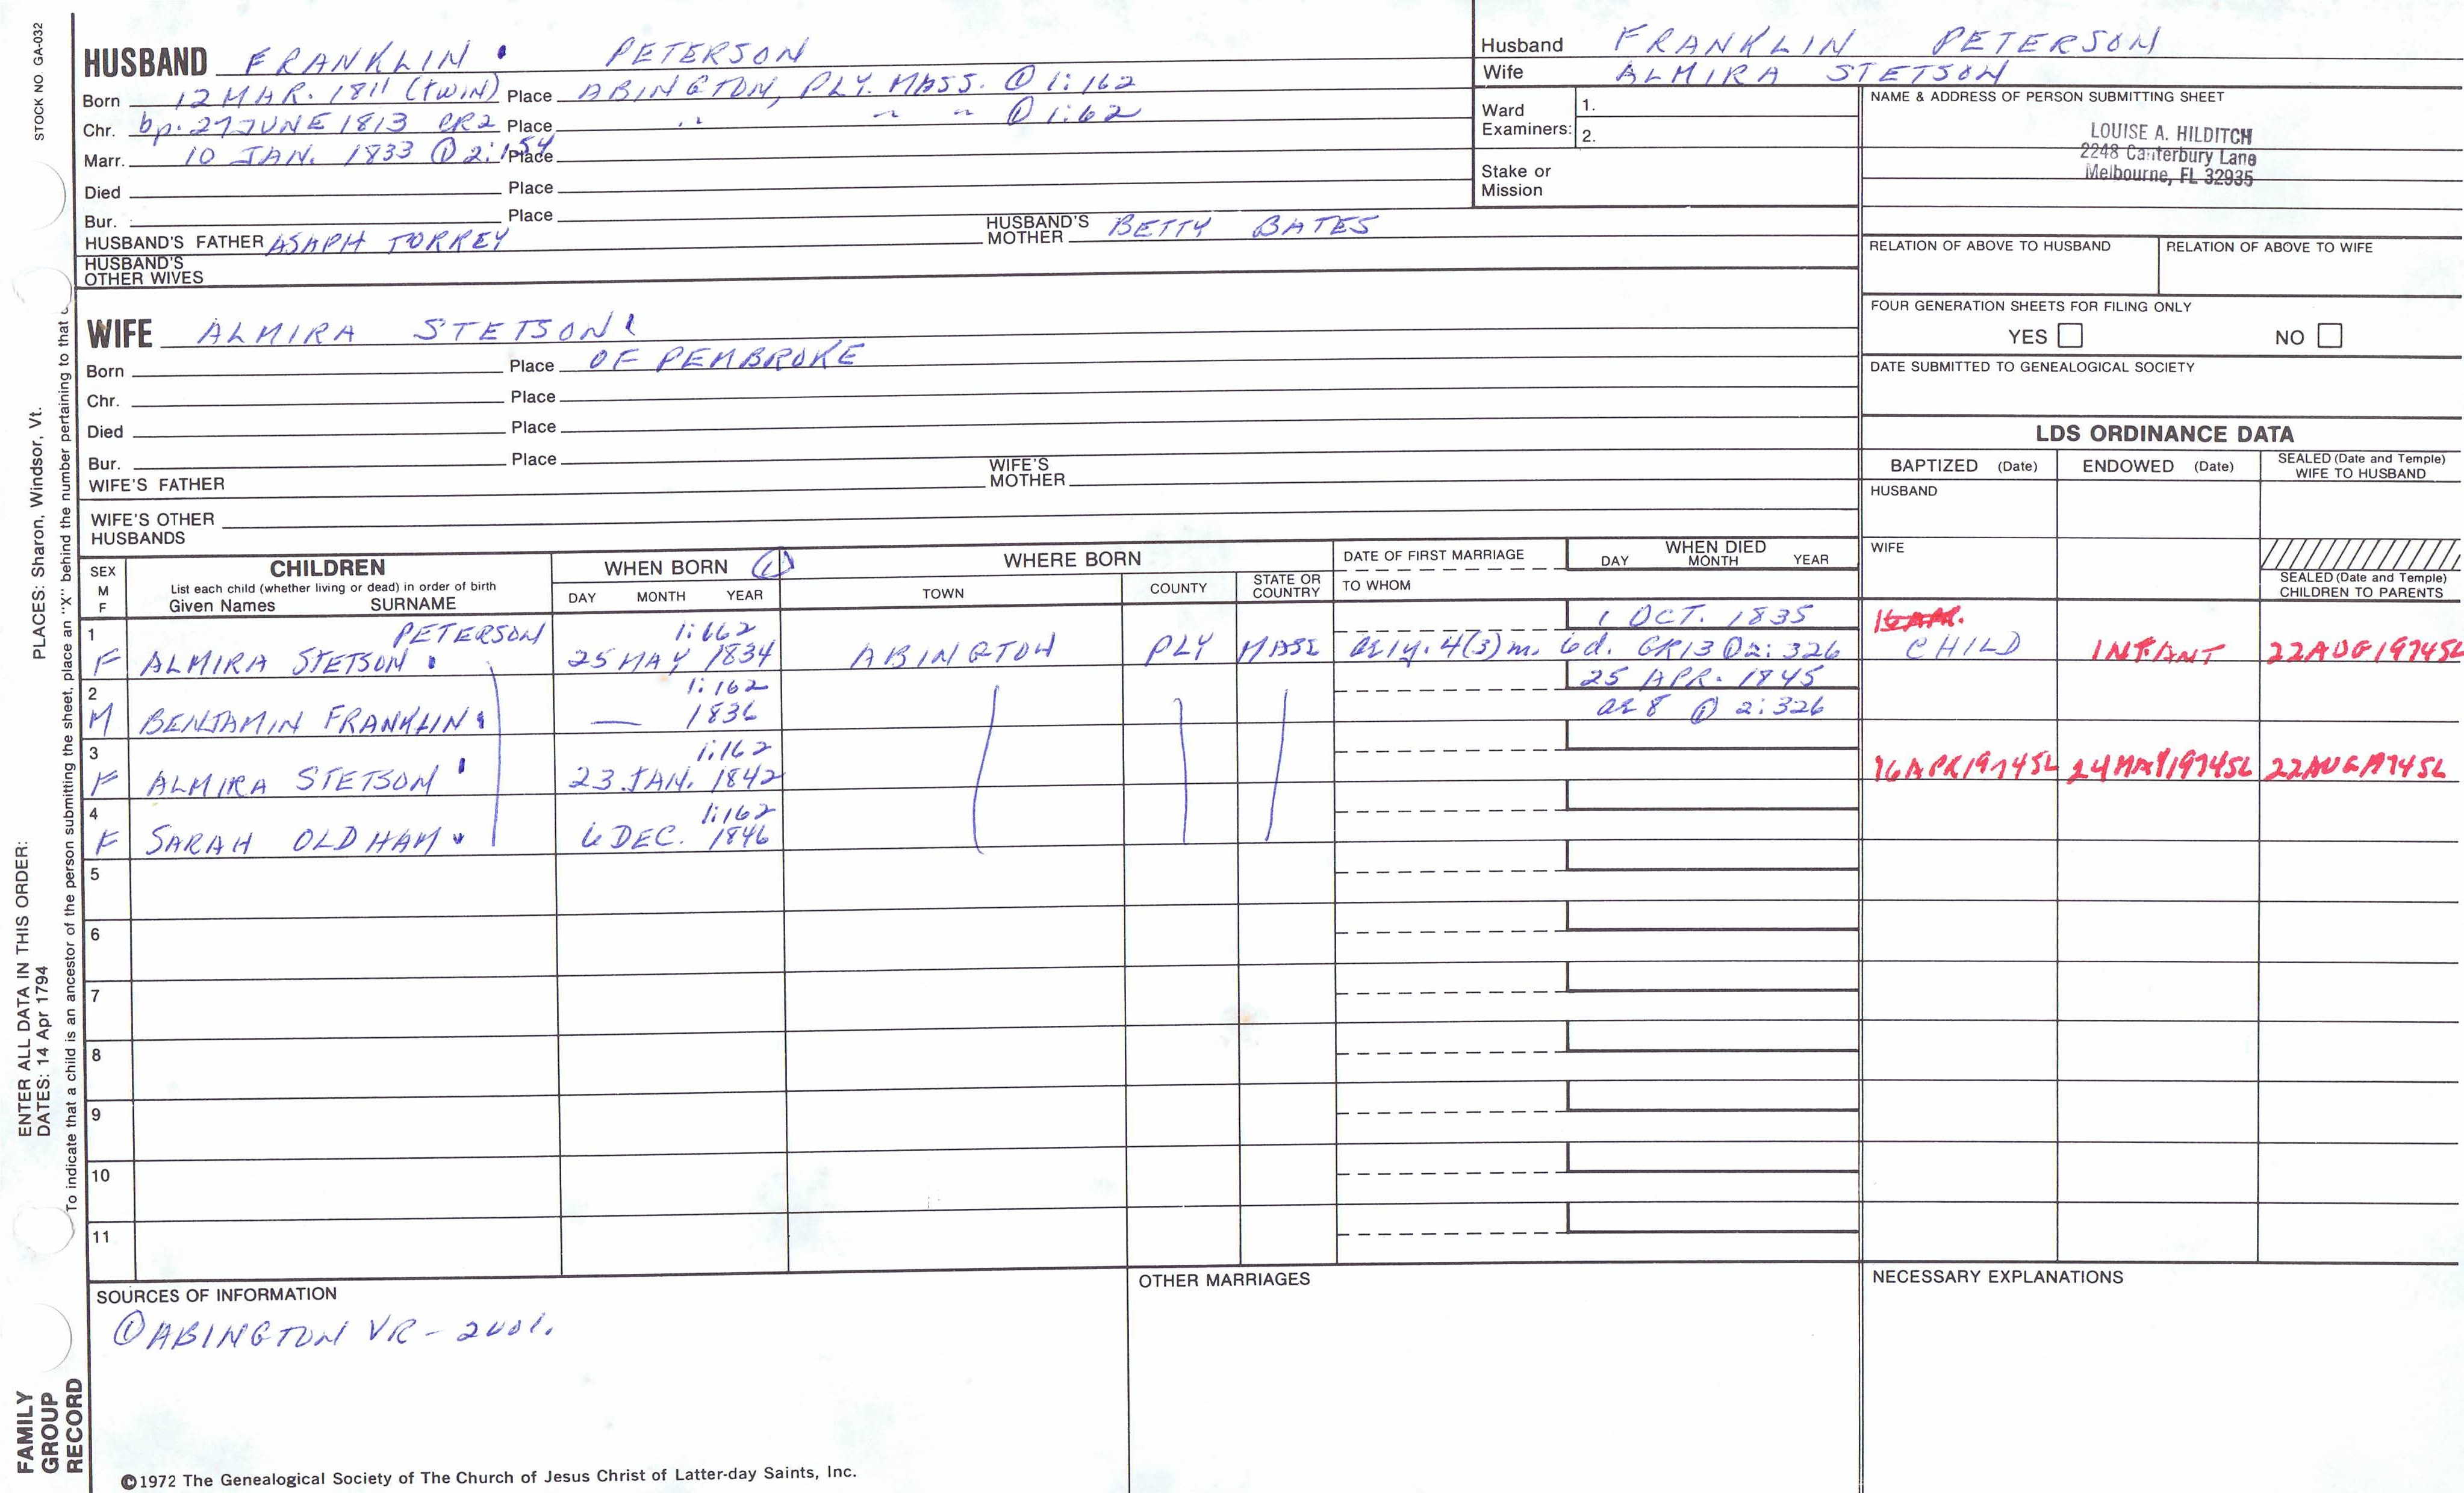 STOCK NO GA-032
HUSBAND FRANKLIN PETERSON
Born 12 MAR. 1811 (TWIN) Place ABINGTON, PLY. MASS. ① 1:162
Chr. bp. 27 JUNE 1813 CR2 Place " " " ① 1:62
Marr. 10 JAN. 1833 ① 2:154 Place
Died Place
Bur. Place
HUSBAND'S FATHER ASAPH TORREY HUSBAND'S MOTHER BETTY BATES
HUSBAND'S OTHER WIVES
WIFE ALMIRA STETSON
Born Place OF PEMBROKE
Chr. Place
Died Place
Bur. Place
WIFE'S FATHER WIFE'S MOTHER
WIFE'S OTHER HUSBANDS
Husband FRANKLIN PETERSON
Wife ALMIRA STETSON
Ward Examiners: 1.
2.
Stake or Mission
NAME & ADDRESS OF PERSON SUBMITTING SHEET
LOUISE A. HILDITCH
2248 Canterbury Lane
Melbourne, FL 32935
RELATION OF ABOVE TO HUSBAND RELATION OF ABOVE TO WIFE
FOUR GENERATION SHEETS FOR FILING ONLY
YES NO
DATE SUBMITTED TO GENEALOGICAL SOCIETY
LDS ORDINANCE DATA
BAPTIZED (Date) ENDOWED (Date) SEALED (Date and Temple) WIFE TO HUSBAND
HUSBAND
WIFE
SEALED (Date and Temple) CHILDREN TO PARENTS
SEX M F CHILDREN
List each child (whether living or dead) in order of birth
Given Names SURNAME
WHEN BORN ①
DAY MONTH YEAR
WHERE BORN
TOWN COUNTY STATE OR COUNTRY
DATE OF FIRST MARRIAGE
TO WHOM
WHEN DIED
DAY MONTH YEAR
1 PETERSON 1:162 1 OCT. 1835 16 APR.
F ALMIRA STETSON 25 MAY 1834 ABINGTON PLY MASS ae 1y. 4(3)m. 6d. GR13 ① 2:326 CHILD INFANT 22AUG1974SL
2 1:162 25 APR. 1845
M BENJAMIN FRANKLIN — 1836 ae 8 ① 2:326
3 1:162
F ALMIRA STETSON 23 JAN. 1842 16APR1974SL 24MAY1974SL 22AUG1974SL
4 1:162
F SARAH OLDHAM 6 DEC. 1846
5
6
7
8
9
10
11
SOURCES OF INFORMATION
① ABINGTON VR - 2 vol.
OTHER MARRIAGES
NECESSARY EXPLANATIONS
©1972 The Genealogical Society of The Church of Jesus Christ of Latter-day Saints, Inc.
ENTER ALL DATA IN THIS ORDER:
DATES: 14 Apr 1794
PLACES: Sharon, Windsor, Vt.
To indicate that a child is an ancestor of the person submitting the sheet, place an "X" behind the number pertaining to that
FAMILY
GROUP
RECORD